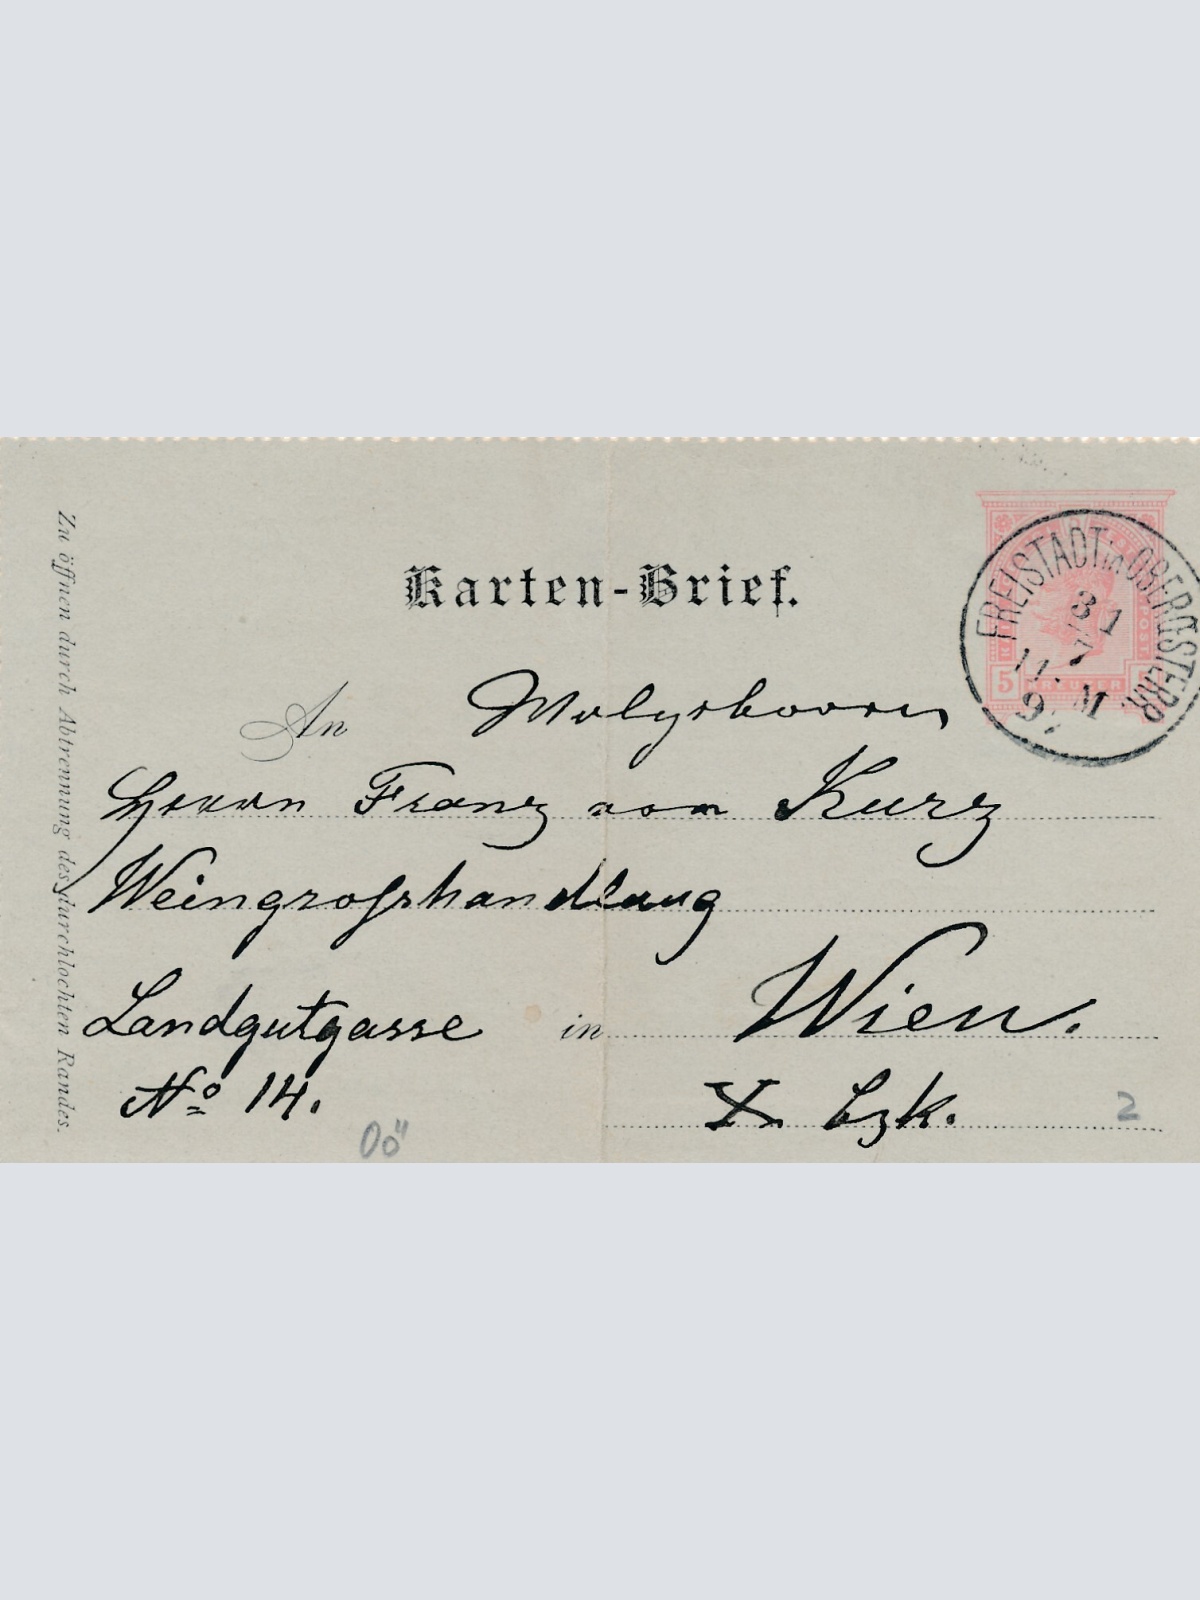 Karten-Brief.
An Wolgeboren
Herrn Franz von Kurz
Weingrosshandlung
Landgutgasse in Wien.
No 14. X Bzk.
OÖ 2
Zu öffnen durch Abtrennung des durchlochten Randes.
FREISTADT in OBERÖSTERR.
31
7
11. M
97
5 KREUZER
POST